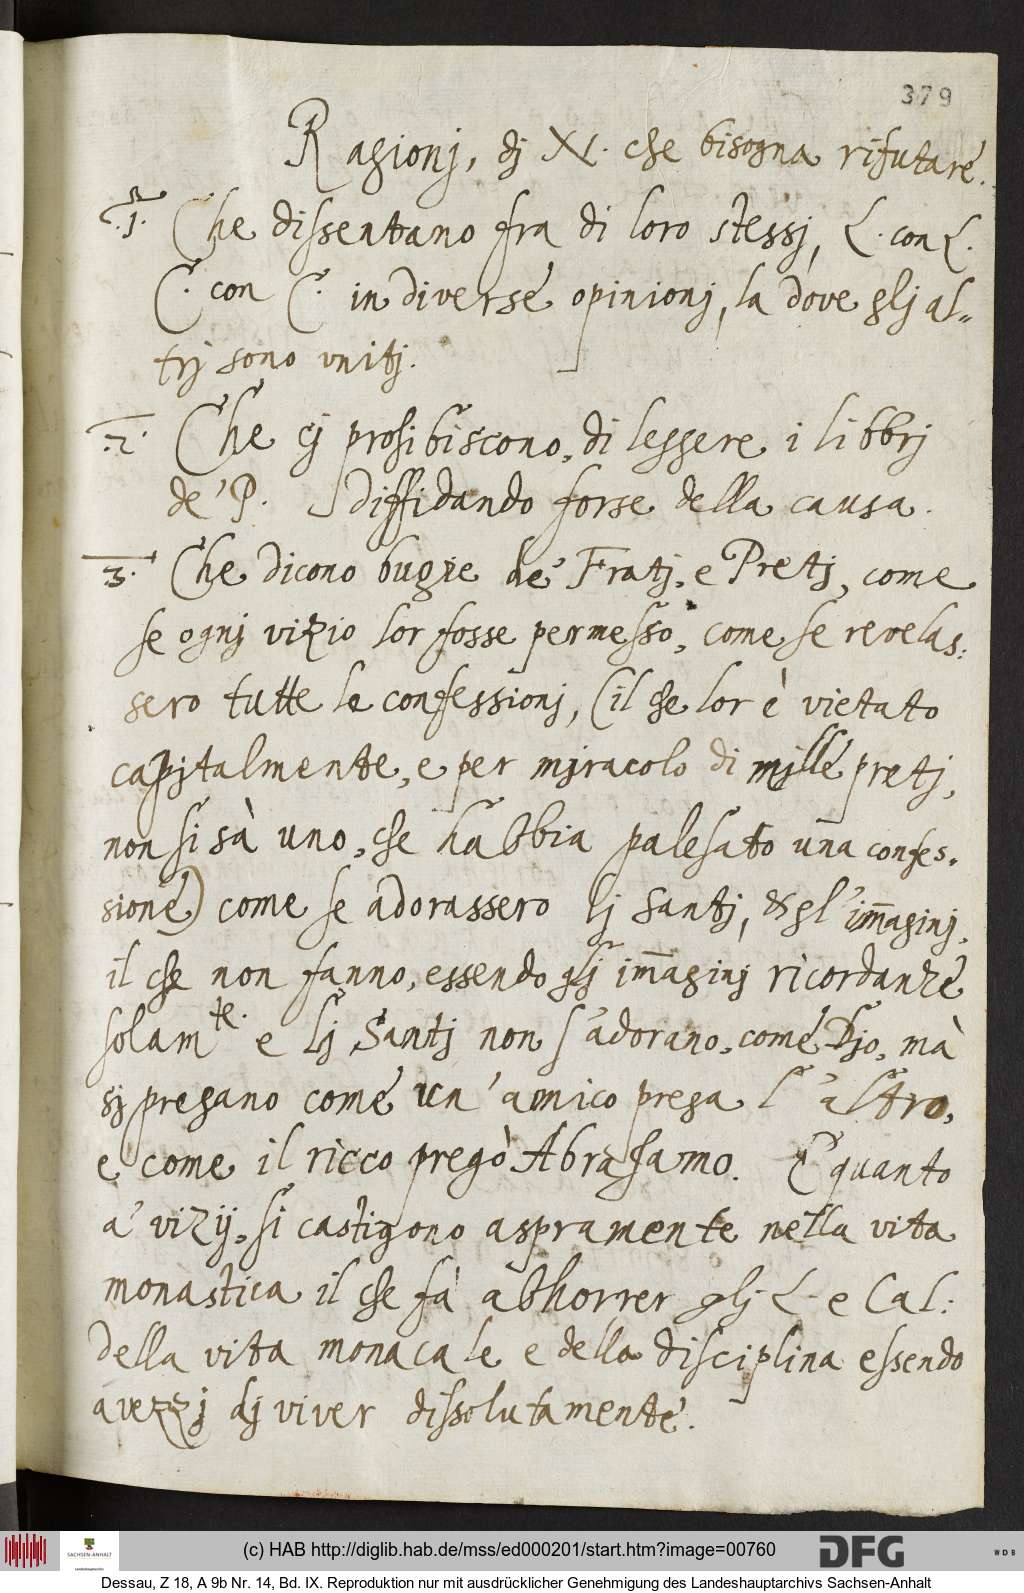 379
Ragionj, dj XI. che bisogna rifutare.
.1. Che dissentano fra di loro stessj, L. con L.
C. con C. in diverse opinionj, la dove glj al-
trj sono vnitj.
.2. Che cj prohibiscono, di leggere i libbrj
de' P. diffidando forse della causa.
3. Che dicono bugie de' Fratj, e Pretj, come
se ognj vizio lor fosse permesso, come se revelas:
sero tutte le confessionj, (il che lor è vietato
capitalmente, e per mjracolo di mjlle pretj,
non si sà uno, che habbia palesato una confes-
sione) come se adorassero lj santj, & gl' im̄aginj,
il che non fanno, essendo glj im̄aginj ricordanze
solam^te. e Lj Santj non s'adorano, come Djo, mà
sj pregano come un' amico prega l'altro,
e come il ricco pregò Abrahamo. E quanto
a' vizij, si castigono aspramente nella vita
monastica il che fà abhorrer glj L. e Cal:
della vita monacale e della disciplina essendo
avezzj dj viver dissolutamente.
SACHSEN-ANHALT
(c) HAB http://diglib.hab.de/mss/ed000201/start.htm?image=00760
DFG
WDB
Dessau, Z 18, A 9b Nr. 14, Bd. IX. Reproduktion nur mit ausdrücklicher Genehmigung des Landeshauptarchivs Sachsen-Anhalt